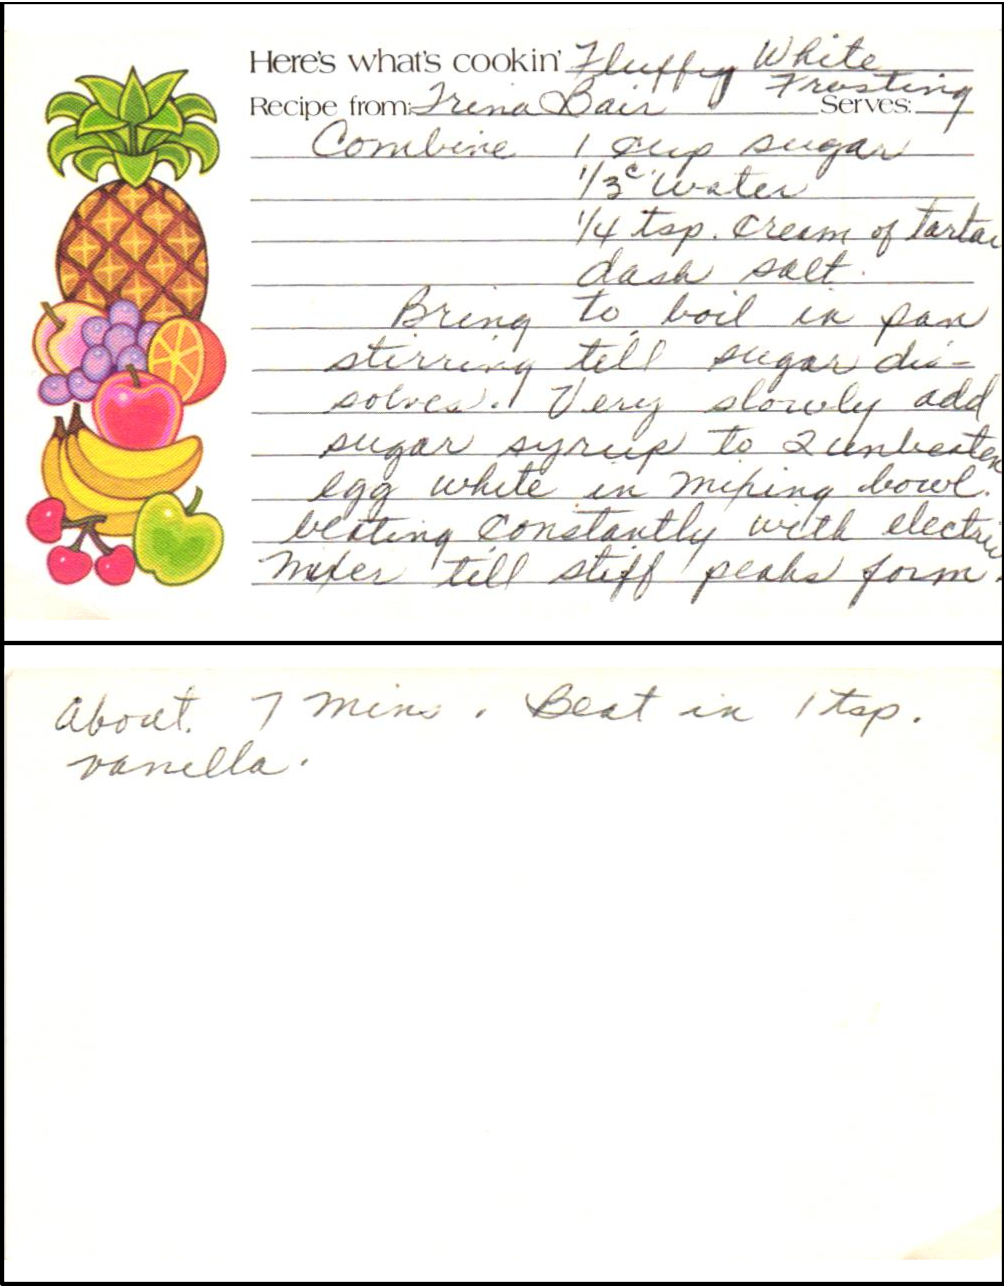 Here's what's cookin' Fluffy White
Frosting
Recipe from: Trina Bair Serves:
Combine 1 cup sugar
1/3 c water
1/4 tsp. cream of tartar
dash salt.
Bring to boil in pan
stirring till sugar dis-
solves. Very slowly add
sugar syrup to 2 unbeaten
egg white in mixing bowl.
beating constantly with electric
mixer till stiff peaks form.
About. 7 mins. Beat in 1 tsp.
vanilla.